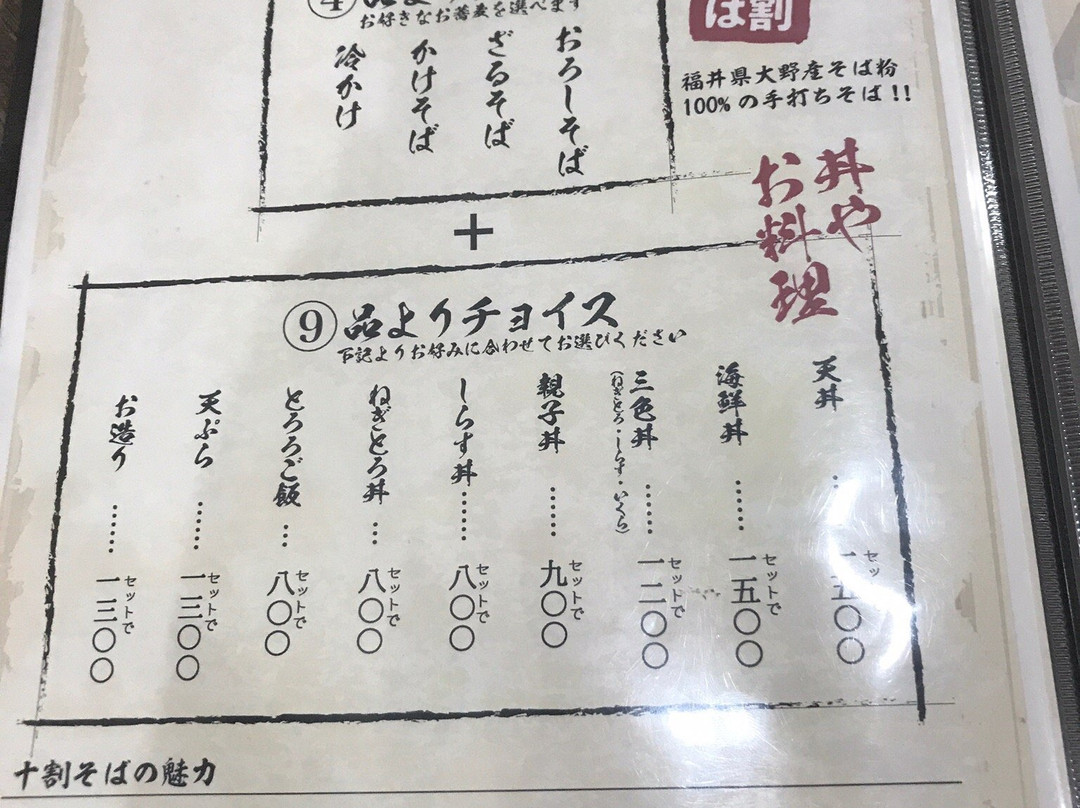 お好きなお蕎麦を選べます
おろしそば
ざるそば
かけそば
冷かけ
は割
福井県大野産そば粉
100%の手打ちそば!!
丼や
お料理
+
⑨品よりチョイス
下記よりお好みに合わせてお選びください
天丼 …… セッ 一五〇〇
海鮮丼 …… セットで 一五〇〇
三色丼 …… セットで 一二〇〇
(ねぎとろ・しらす・いくら)
親子丼 …… セットで 九〇〇
しらす丼 …… セットで 八〇〇
ねぎとろ丼 … セットで 八〇〇
とろろご飯 … セットで 八〇〇
天ぷら …… セットで 一三〇〇
お造り …… セットで 一三〇〇
十割そばの魅力